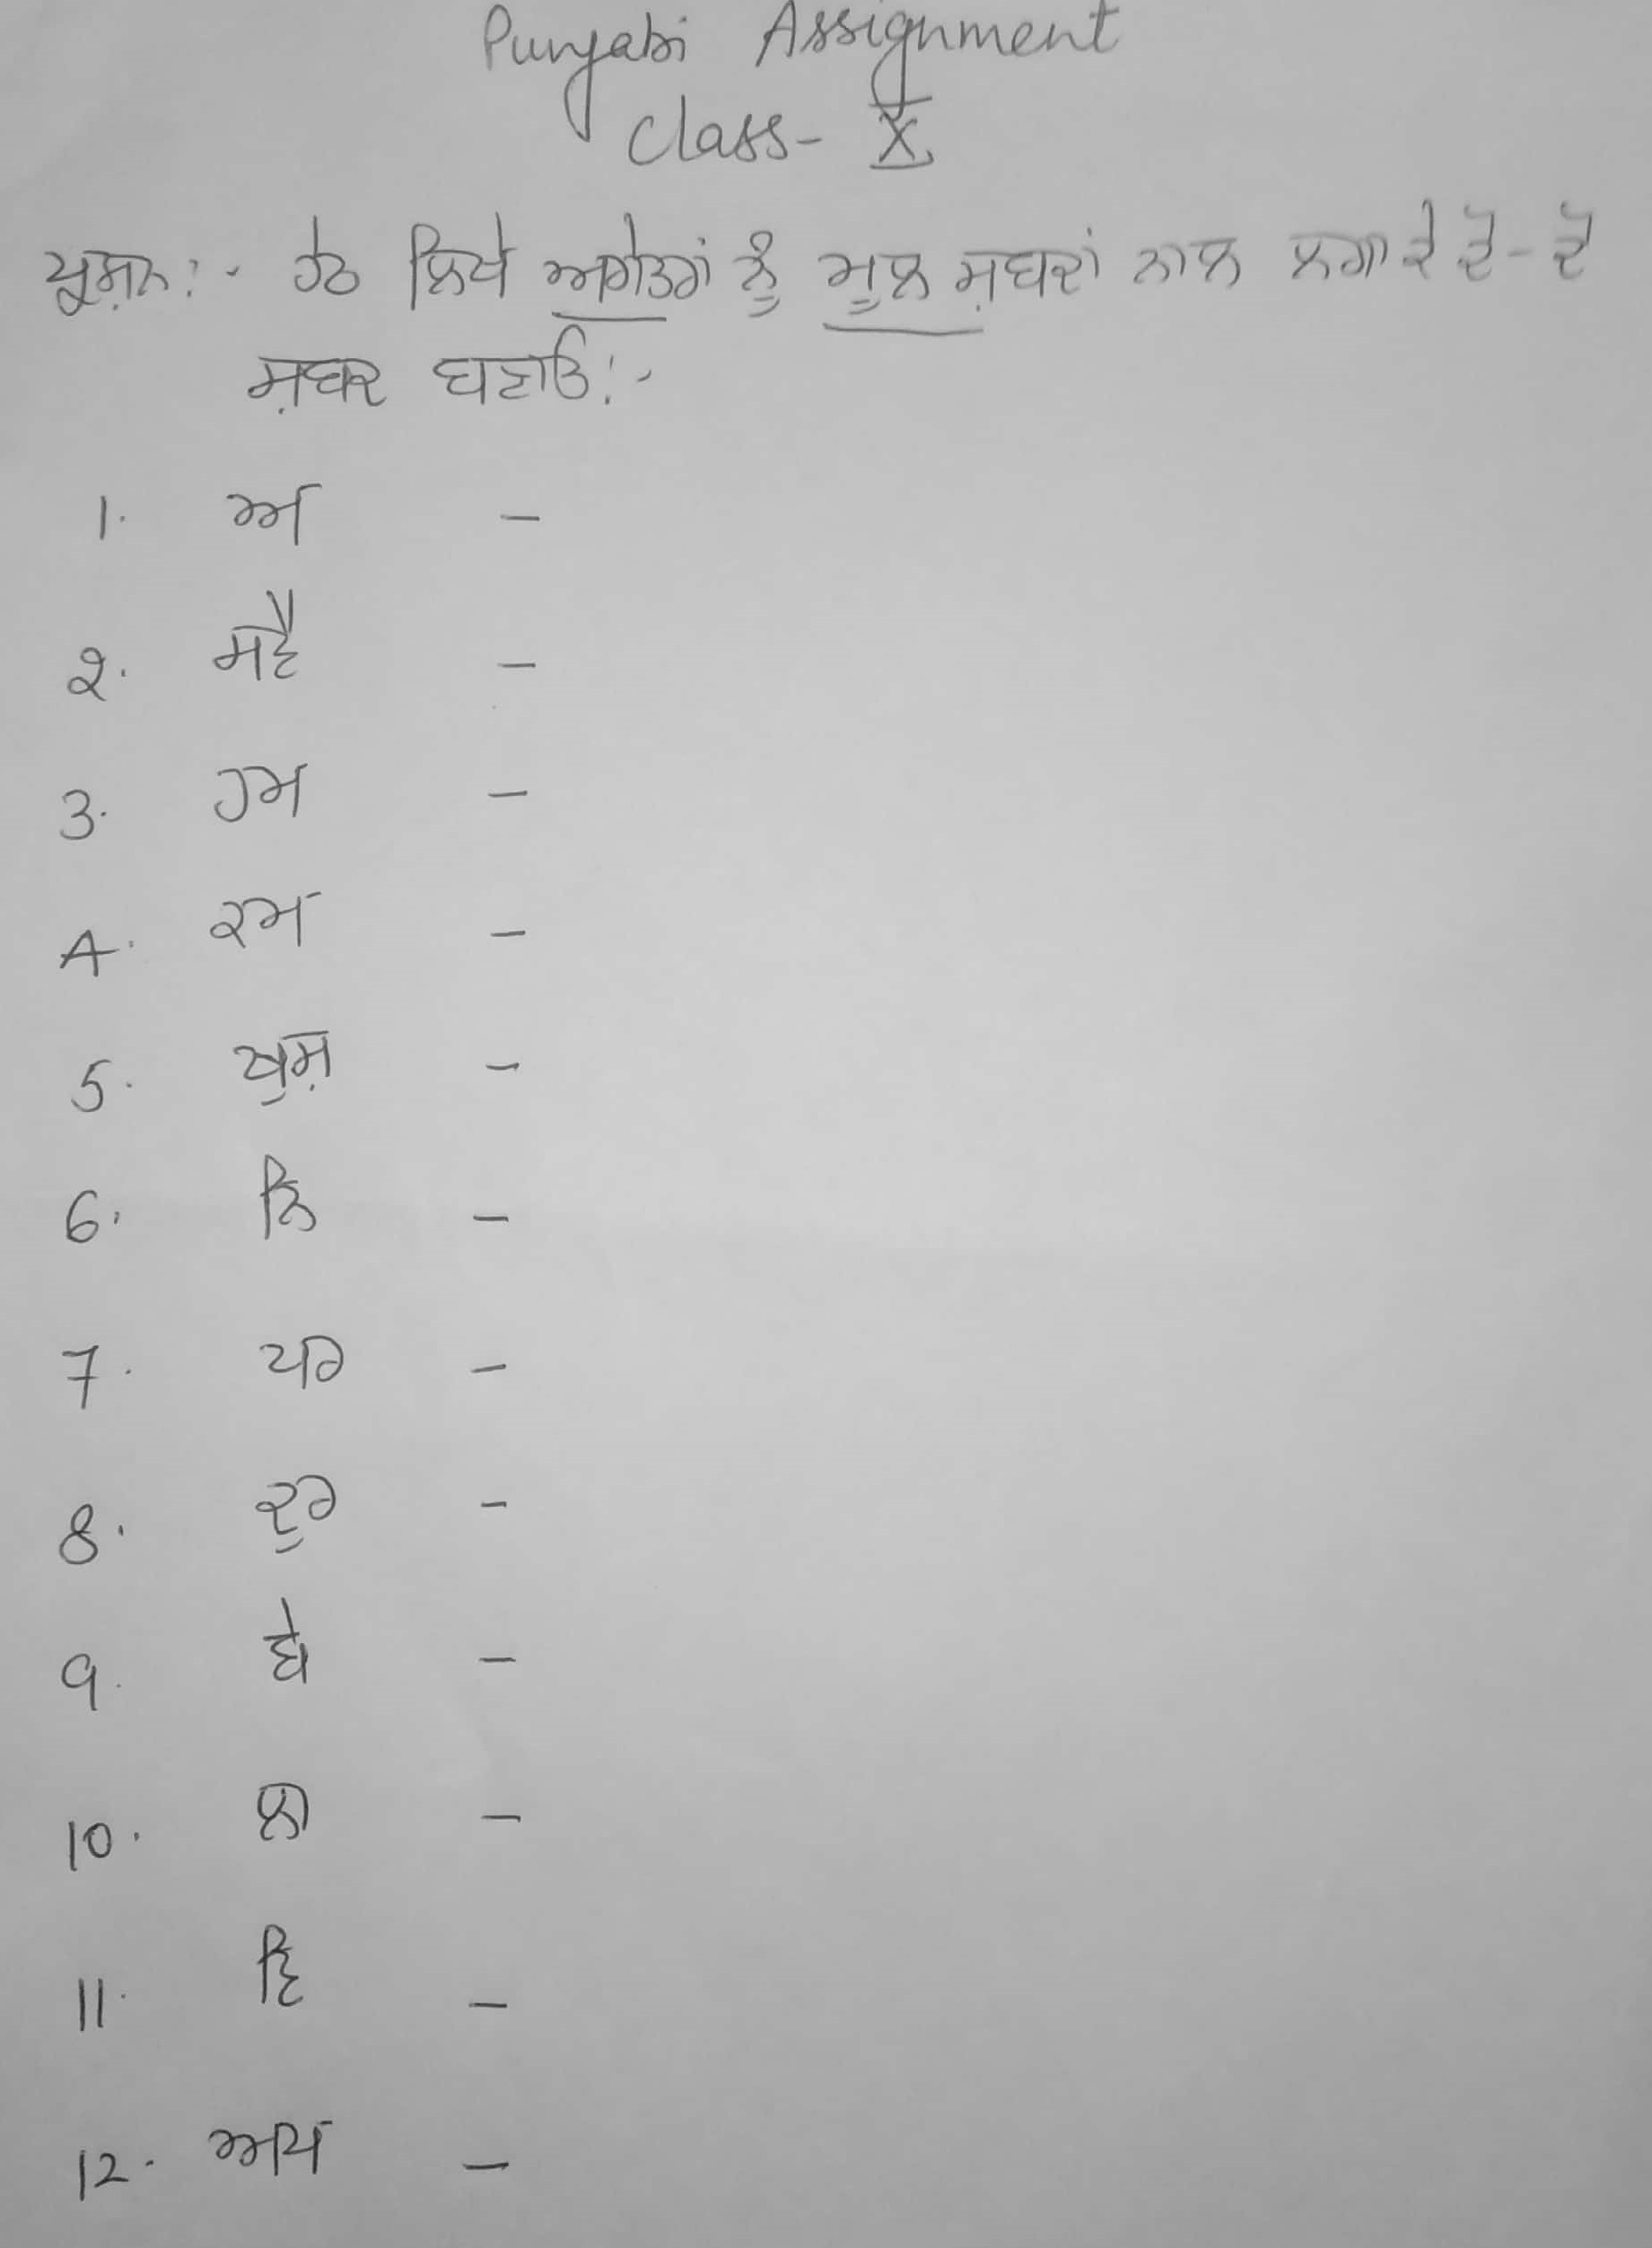 Punjabi Assignment
Class- X
ਪ੍ਰਸ਼ਨ:- ਹੇਠ ਲਿਖੇ ਅਗੇਤਰਾਂ ਨੂੰ ਮੂਲ ਸ਼ਬਦਾਂ ਨਾਲ ਲਗਾ ਕੇ ਦੋ-ਦੋ
ਸ਼ਬਦ ਬਣਾਓ:-
1. ਅ -
2. ਸਵੈ -
3. ਹਮ -
4. ਕਮ -
5. ਖੁਸ਼ -
6. ਨਿ -
7. ਪਰ -
8. ਦੁਰ -
9. ਬੇ -
10. ਲਾ -
11. ਵਿ -
12. ਅਪ -